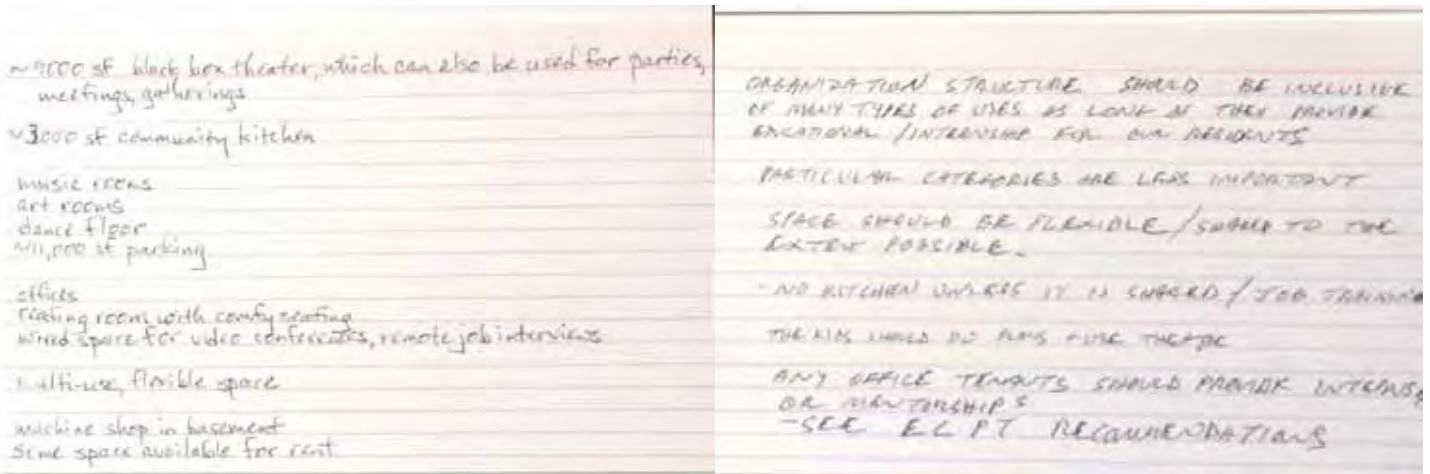 sf black box theater, which can also be used for parties,
meetings, gatherings
~3000 sf community kitchen
music rooms
art rooms
dance floor
~11,000 sf parking
offices
reading room with comfy seating
wired space for video conferences, remote job interviews
multi-use, flexible space
machine shop in basement
some space available for rent
ORGANIZATION STRUCTURE SHOULD BE INCLUSIVE
OF MANY TYPES OF USES AS LONG AS THEY PROVIDE
EDUCATIONAL / INTERNSHIP FOR OUR RESIDENTS
PARTICULAR CATEGORIES ARE LESS IMPORTANT
SPACE SHOULD BE FLEXIBLE / SHARED TO THE
EXTENT POSSIBLE.
- NO KITCHEN UNLESS IT IS SHARED / JOB TRAINING
THE KIDS SHOULD DO PLAYS + USE THEATRE
ANY OFFICE TENANTS SHOULD PROVIDE INTERNS
OR MENTORSHIPS
- SEE ECPT RECOMMENDATIONS